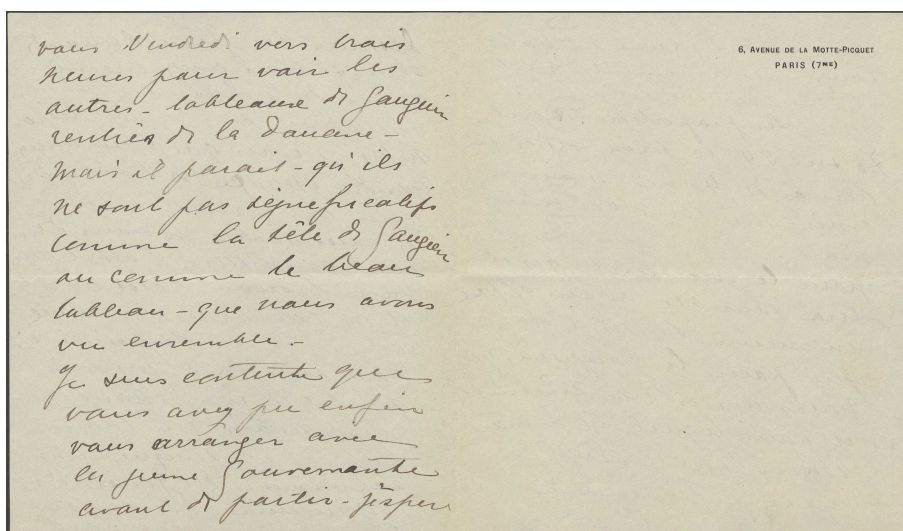 vous Vendredi vers trois
heures pour voir les
autres - tableaux de Gauguin
rentrés de la Douane -
mais il parait - qu'ils
ne sont pas significatifs
comme la tête de Gauguin
ou comme le beau
tableau - que nous avons
vu ensemble -
Je suis contente que
vous avez pu enfin
vous arranger avec
la jeune Gouvernante
avant de partir - j'espère
6, AVENUE DE LA MOTTE-PICQUET
PARIS (7ME)